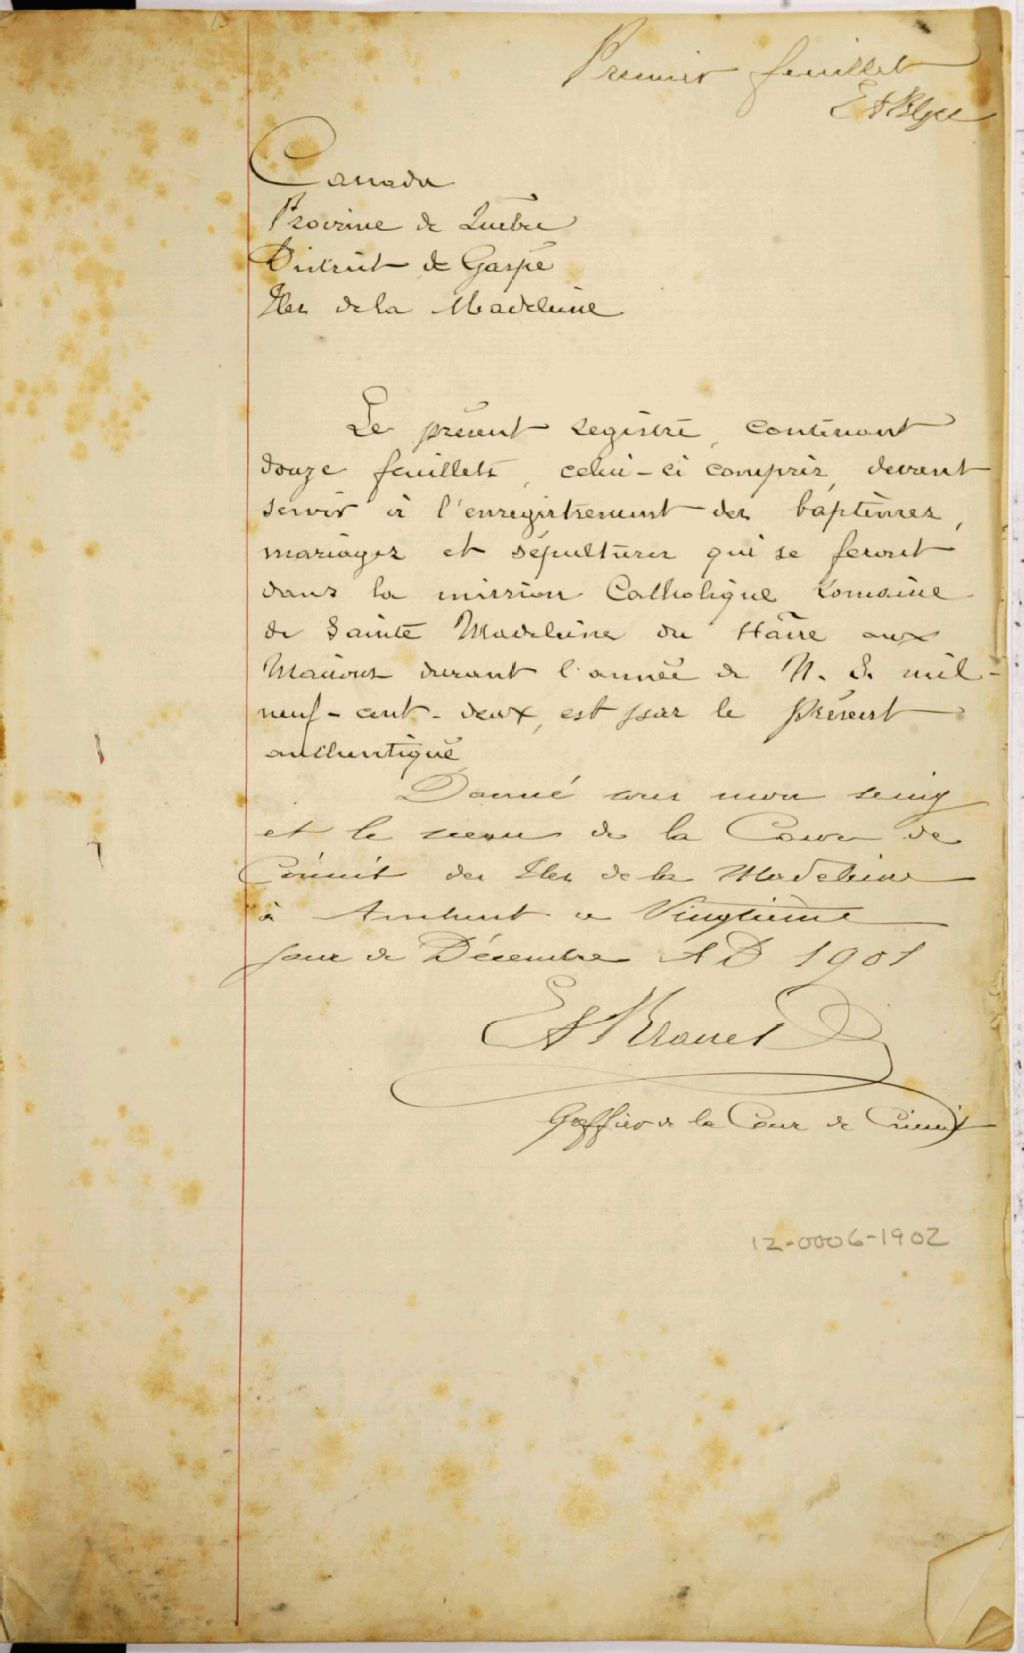 Premier feuillet
Canada
Province de Québec
District de Gaspé
Iles de la Madeleine
Le présent registre, contenant
douze feuillets, celui-ci compris, devant
servir à l'enregistrement des baptêmes,
mariages et sépultures qui se feront
dans la mission Catholique romaine
de Sainte Madeleine du Hâvre aux
Maisons durant l'année de N. S. mil-
neuf-cent-deux, est par le présent
authentiqué
Donné sous mon seing
et le sceau de la Cour de
Circuit des Iles de la Madeleine
à Amherst ce Vingtième
jour de Décembre A D 1901
Greffier de la Cour de Circuit
12-0006-1902